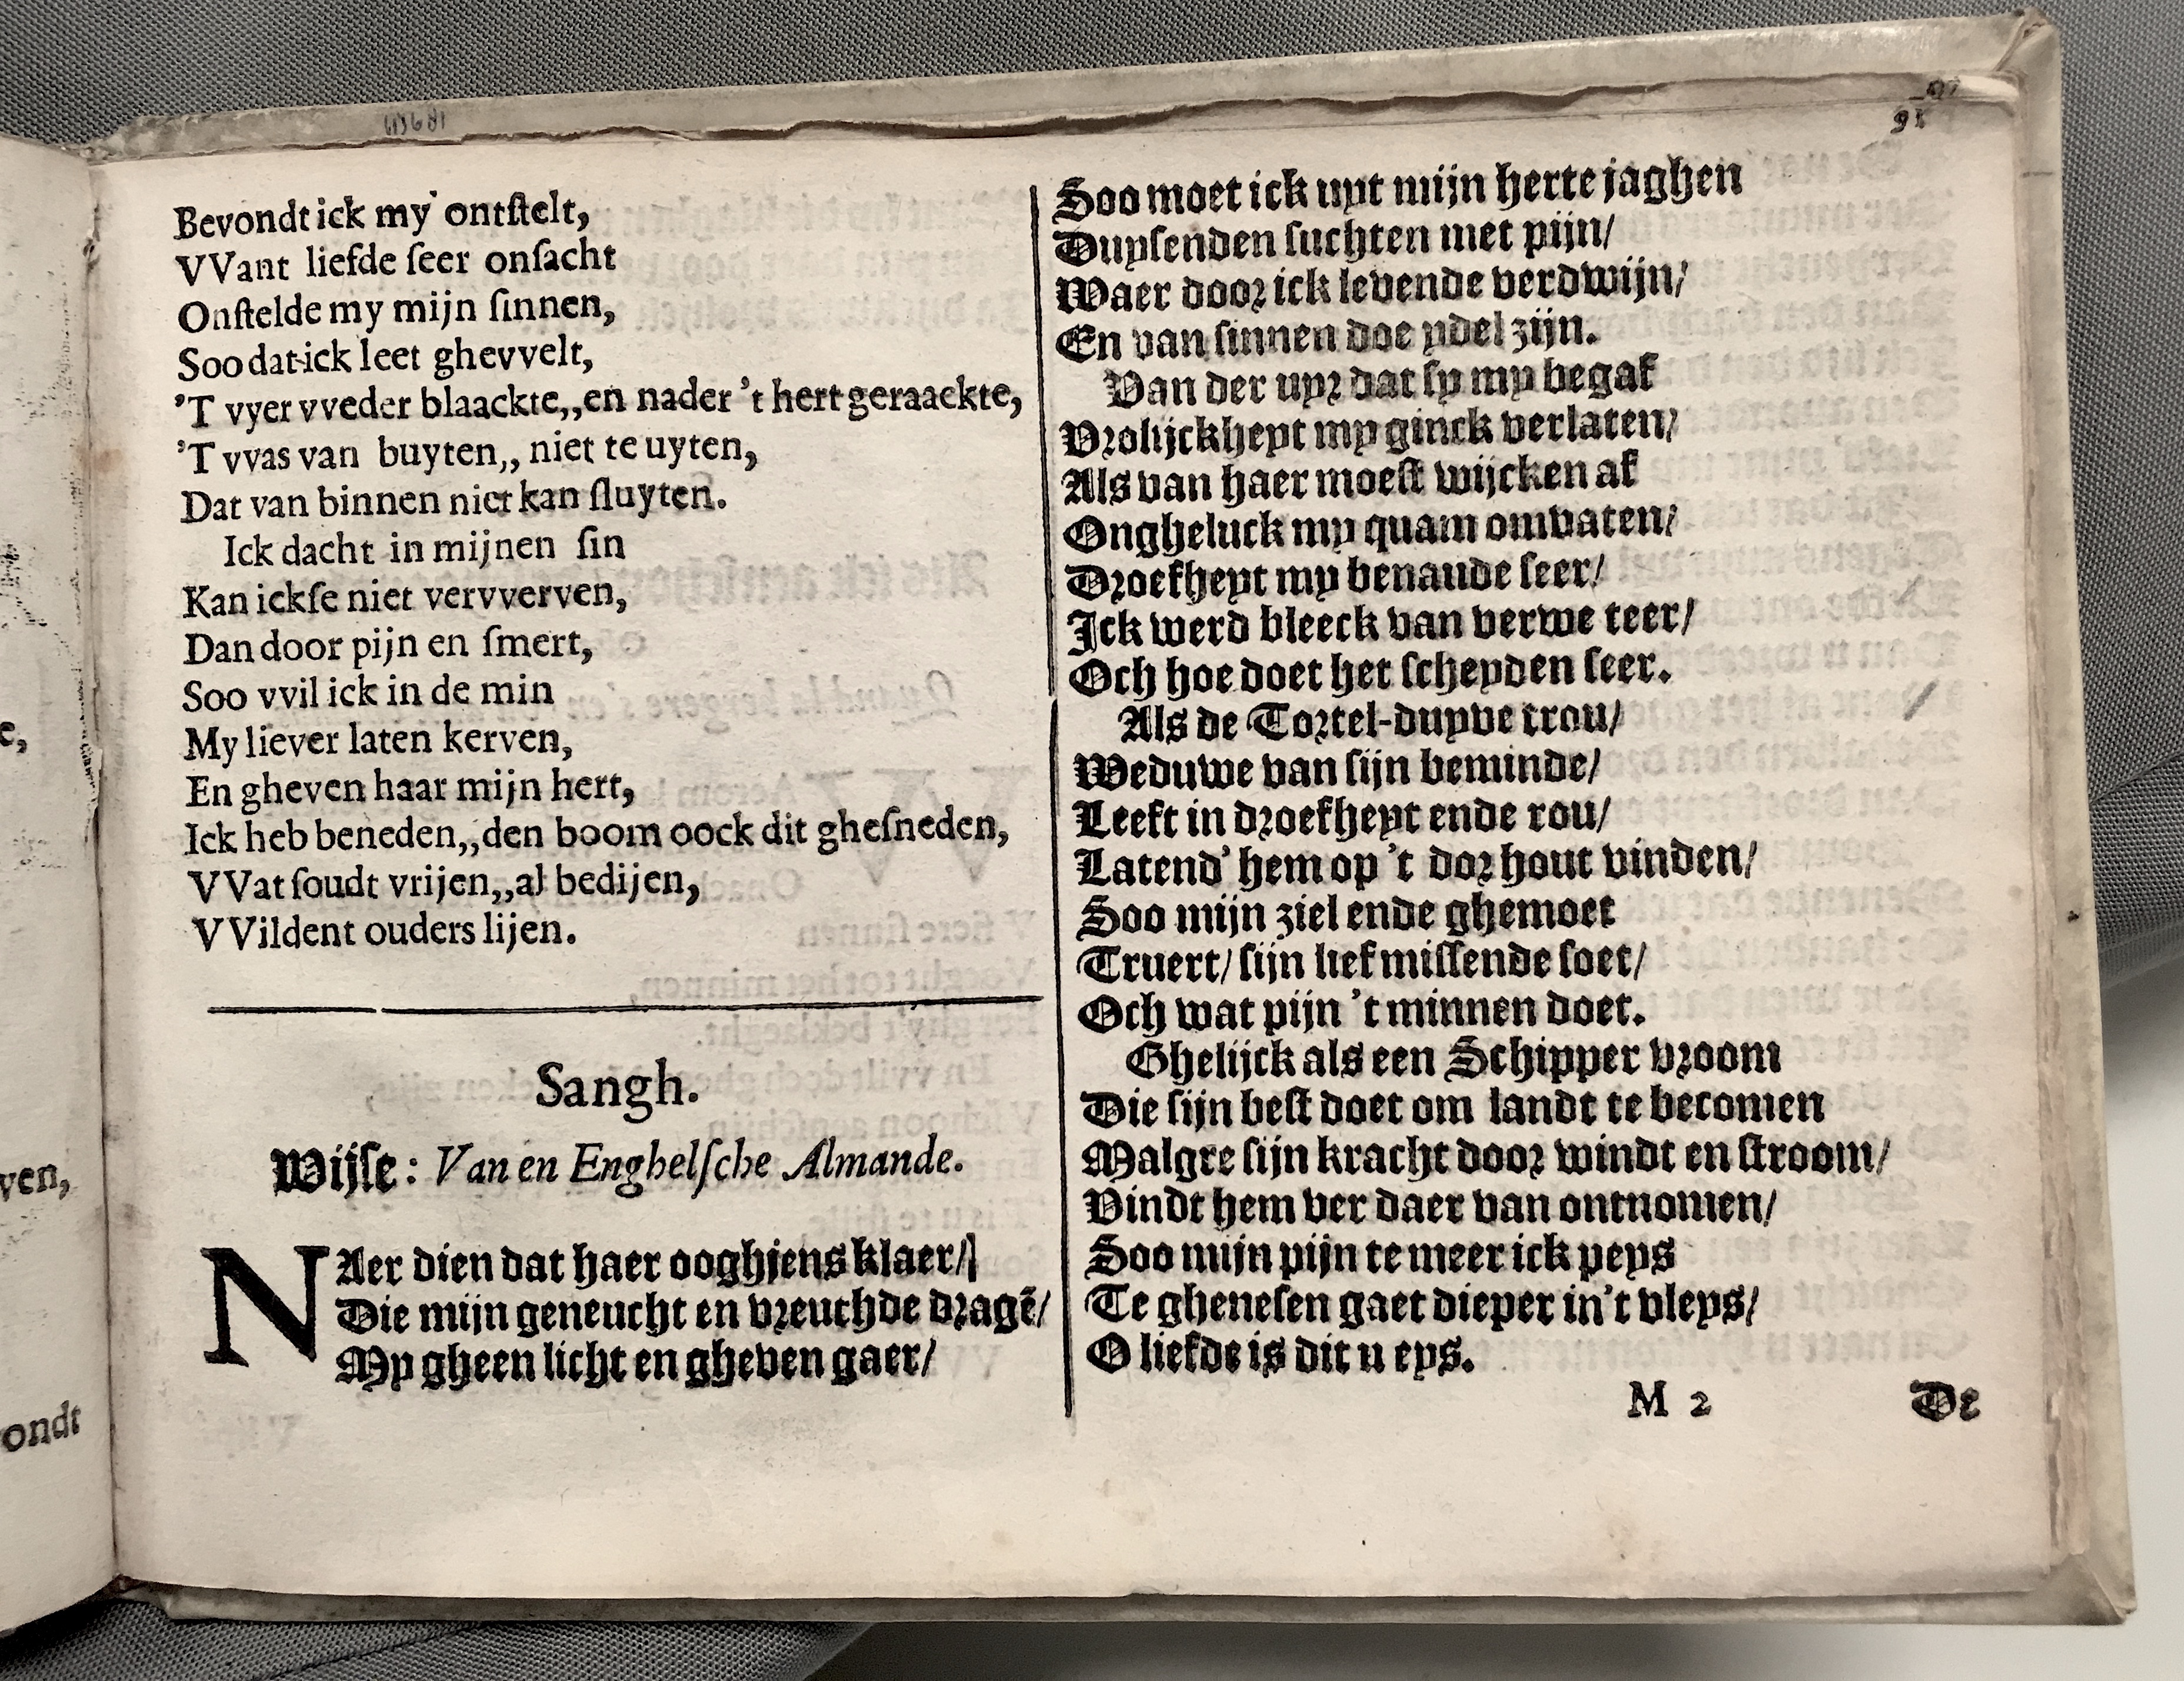 Bevondt ick my ontſtelt,
VVant liefde ſeer onſacht
Onſtelde my mijn ſinnen,
Soo dat-ick leet ghevvelt,
'T vyer vveder blaackte,,en nader 't hert geraackte,
'T vvas van buyten,, niet te uyten,
Dat van binnen niet kan ſluyten.
Ick dacht in mijnen ſin
Kan ickſe niet vervverven,
Dan door pijn en ſmert,
Soo vvil ick in de min
My liever laten kerven,
En gheven haar mijn hert,
Ick heb beneden,,den boom oock dit gheſneden,
VVat ſoudt vrijen,,al bedijen,
VVildent ouders lijen.
Sangh.
Wijſe: Van en Enghelſche Almande.
NAer dien dat haer ooghjens klaer/
Die mijn geneucht en vreuchde dragẽ/
My gheen licht en gheven gaer/
Soo moet ick uyt mijn herte jaghen
Duyſenden ſuchten met pijn/
Waer door ick levende verdwijn/
En van ſinnen doe ydel zijn.
Van der uyr dat ſy my begaf
Vrolijckheyt my ginck verlaten/
Als van haer moeſt wijcken af
Ongheluck my quam omvaten/
Droefheyt my benaude ſeer/
Ick werd bleeck van verwe teer/
Och hoe doet het ſcheyden ſeer.
Als de Tortel-duyve trou/
Weduwe van ſijn beminde/
Leeft in droefheyt ende rou/
Latend' hem op 't dor hout vinden/
Soo mijn ziel ende ghemoet
Truert/ ſijn lief miſſende ſoet/
Och wat pijn 't minnen doet.
Ghelijck als een Schipper vroom
Die ſijn beſt doet om landt te becomen
Malgre ſijn kracht door windt en ſtroom/
Vindt hem ver daer van ontnomen/
Soo mijn pijn te meer ick peys
Te gheneſen gaet dieper in't vleys/
O liefde is dit u eys.
M 2 De